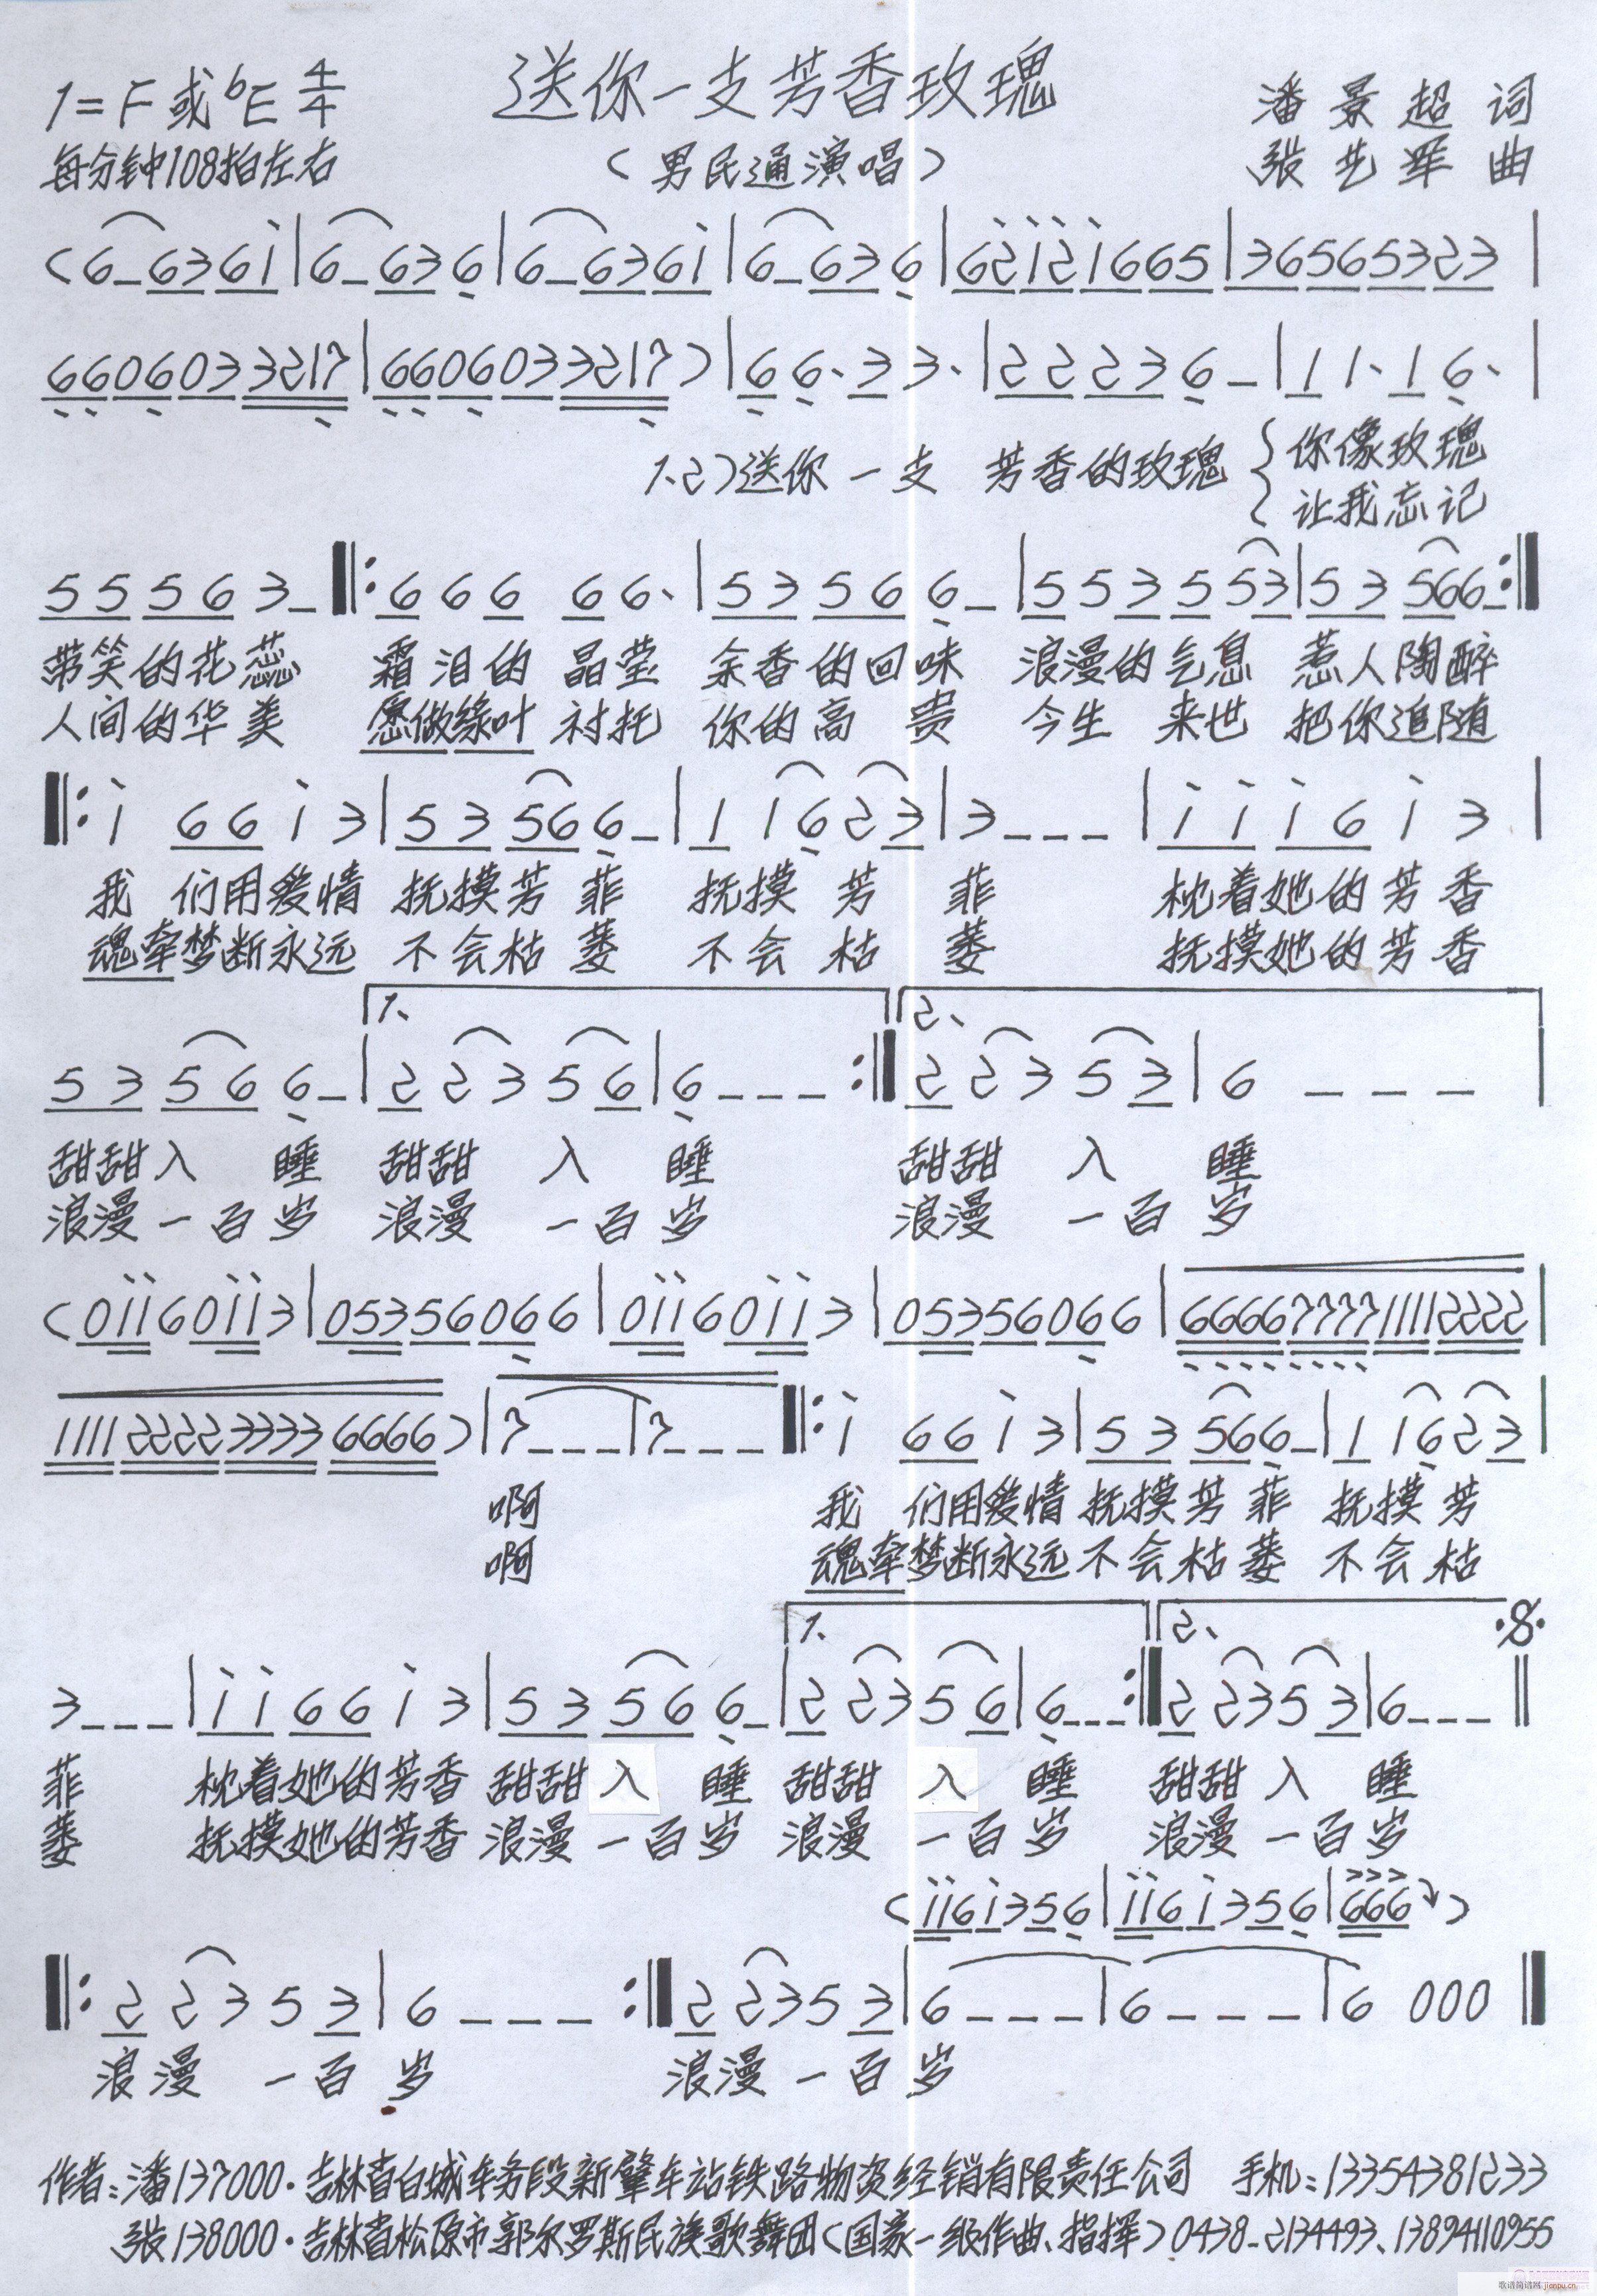 送你一支芳香玫瑰
1=F或bE 4/4
潘景超 词
每分钟108拍左右
(男民通演唱)
张艺军 曲
(6-6361|6-636|6-6361|6-636|62121665|36565323|
660603 3217|660603 3217)|66·33·|22236-|11·16·|
1.2)送你一支 芳香的玫瑰 {你像玫瑰
让我忘记
55563-‖:66666·|53566-|553553|53566-:‖
带笑的花蕊 霜泪的 晶莹 余香的回味 浪漫的气息 惹人陶醉
人间的华美 愿做绿叶 衬托 你的高贵 今生来世 把你追随
‖:i66i3|53566-|11623|3---|iii6i3|
我们用爱情 抚摸芳菲 抚摸芳菲 枕着她的芳香
魂牵梦断永远 不会枯萎 不会枯萎 抚摸她的芳香
1、 2、
53566-|22356|6---:‖22353|6---|
甜甜入睡 甜甜入睡 甜甜入睡
浪漫一百岁 浪漫一百岁 浪漫一百岁
(0ii60ii3|05356066|0ii60ii3|05356066|6666777711112222|
1111222233336666)|7---|7---‖:i66i3|53566-|11623|
啊 我们用爱情 抚摸芳菲 抚摸芳
啊 魂牵梦断永远 不会枯萎 不会枯
1、 2、
3---|ii66i3|53566-|22356|6---:‖22353|6---‖
菲 枕着她的芳香 甜甜入睡 甜甜入睡 甜甜入睡
萎 抚摸她的芳香 浪漫一百岁 浪漫一百岁 浪漫一百岁
(ii6i356|ii6i356|666)
‖:22353|6---:‖22353|6---|6---|6000‖
浪漫一百岁 浪漫一百岁
作者:潘137000·吉林省白城车务段新肇车站铁路物资经销有限责任公司 手机:13354381233
张138000·吉林省松原市郭尔罗斯民族歌舞团(国家一级作曲、指挥)0438-2134493、13894110955
歌谱简谱网 jianpu.cn